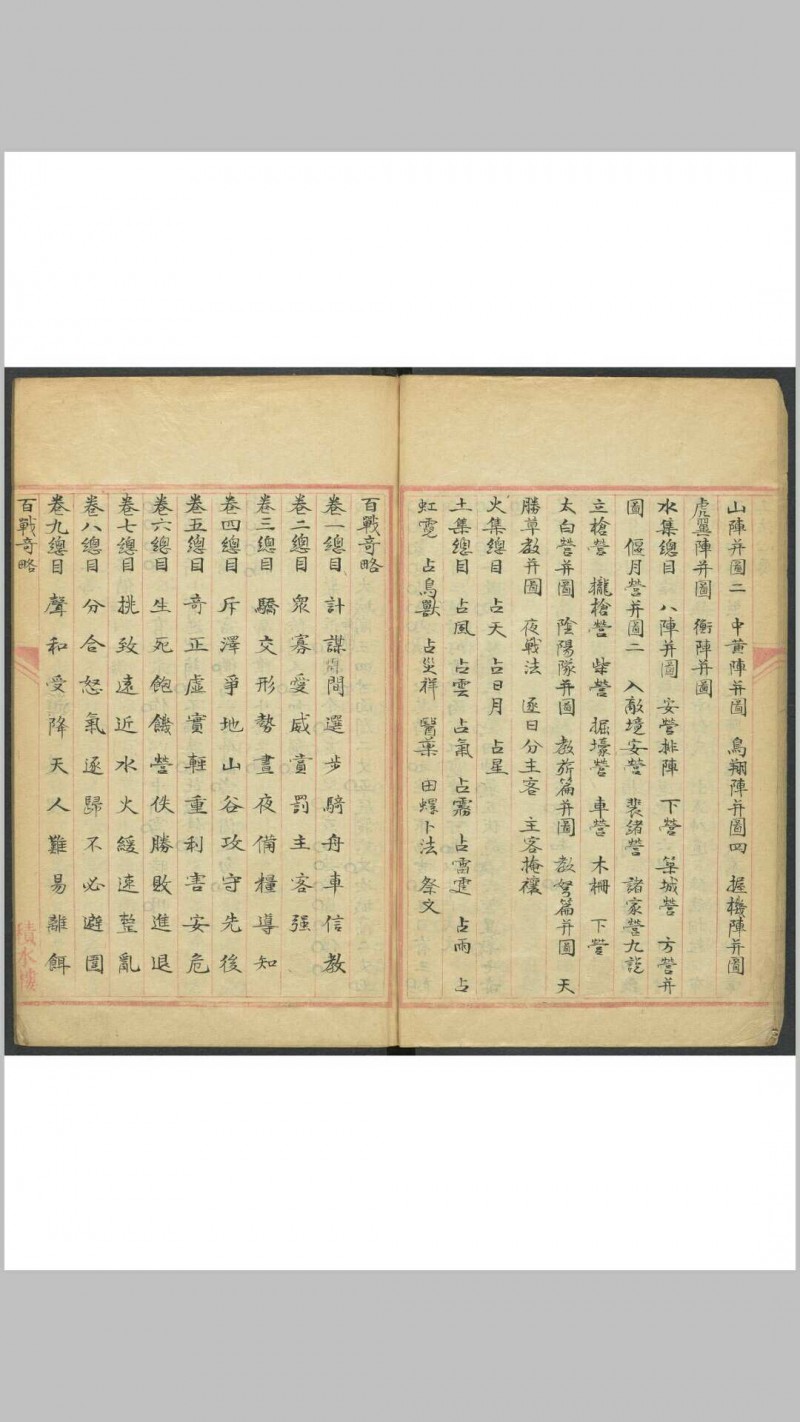 山陣并圖二　中黄陣并圖　鳥翔陣并圖四　握機陣并圖
虎翼陣并圖　衝陣并圖
水集總目　八陣并圖　安營排陣　下營　築城營　方營并
圖　偃月營并圖二　入敵境安營　裴緒營　諸家營九說
立槍營　攏槍營　柴營　掘壕營　車營　木柵　下營
太白營并圖　陰陽隊并圖　教旂篇并圖　教弩篇并圖　天
勝草教并圖　夜戰法　逐日分主客　主客掩襀
火集總目　占天　占日月　占星
土集總目　占風　占雲　占氣　占霧　占雷霆　占雨　占
虹霓　占鳥獸　占災祥　醫藥　田螺卜法　祭文
百戰奇略
卷一總目　計謀間選步騎舟車信教
卷二總目　衆寡愛威賞罰主客强
卷三總目　驕交形勢晝夜備糧導知
卷四總目　斥澤爭地山谷攻守先後
卷五總目　奇正虛實輕重利害安危
卷六總目　生死飽饑勞佚勝敗進退
卷七總目　挑致遠近水火緩速整亂
卷八總目　分合怒氣逐歸不必避圍
卷九總目　聲和受降天人難易離餌
百戰奇略
積水樓